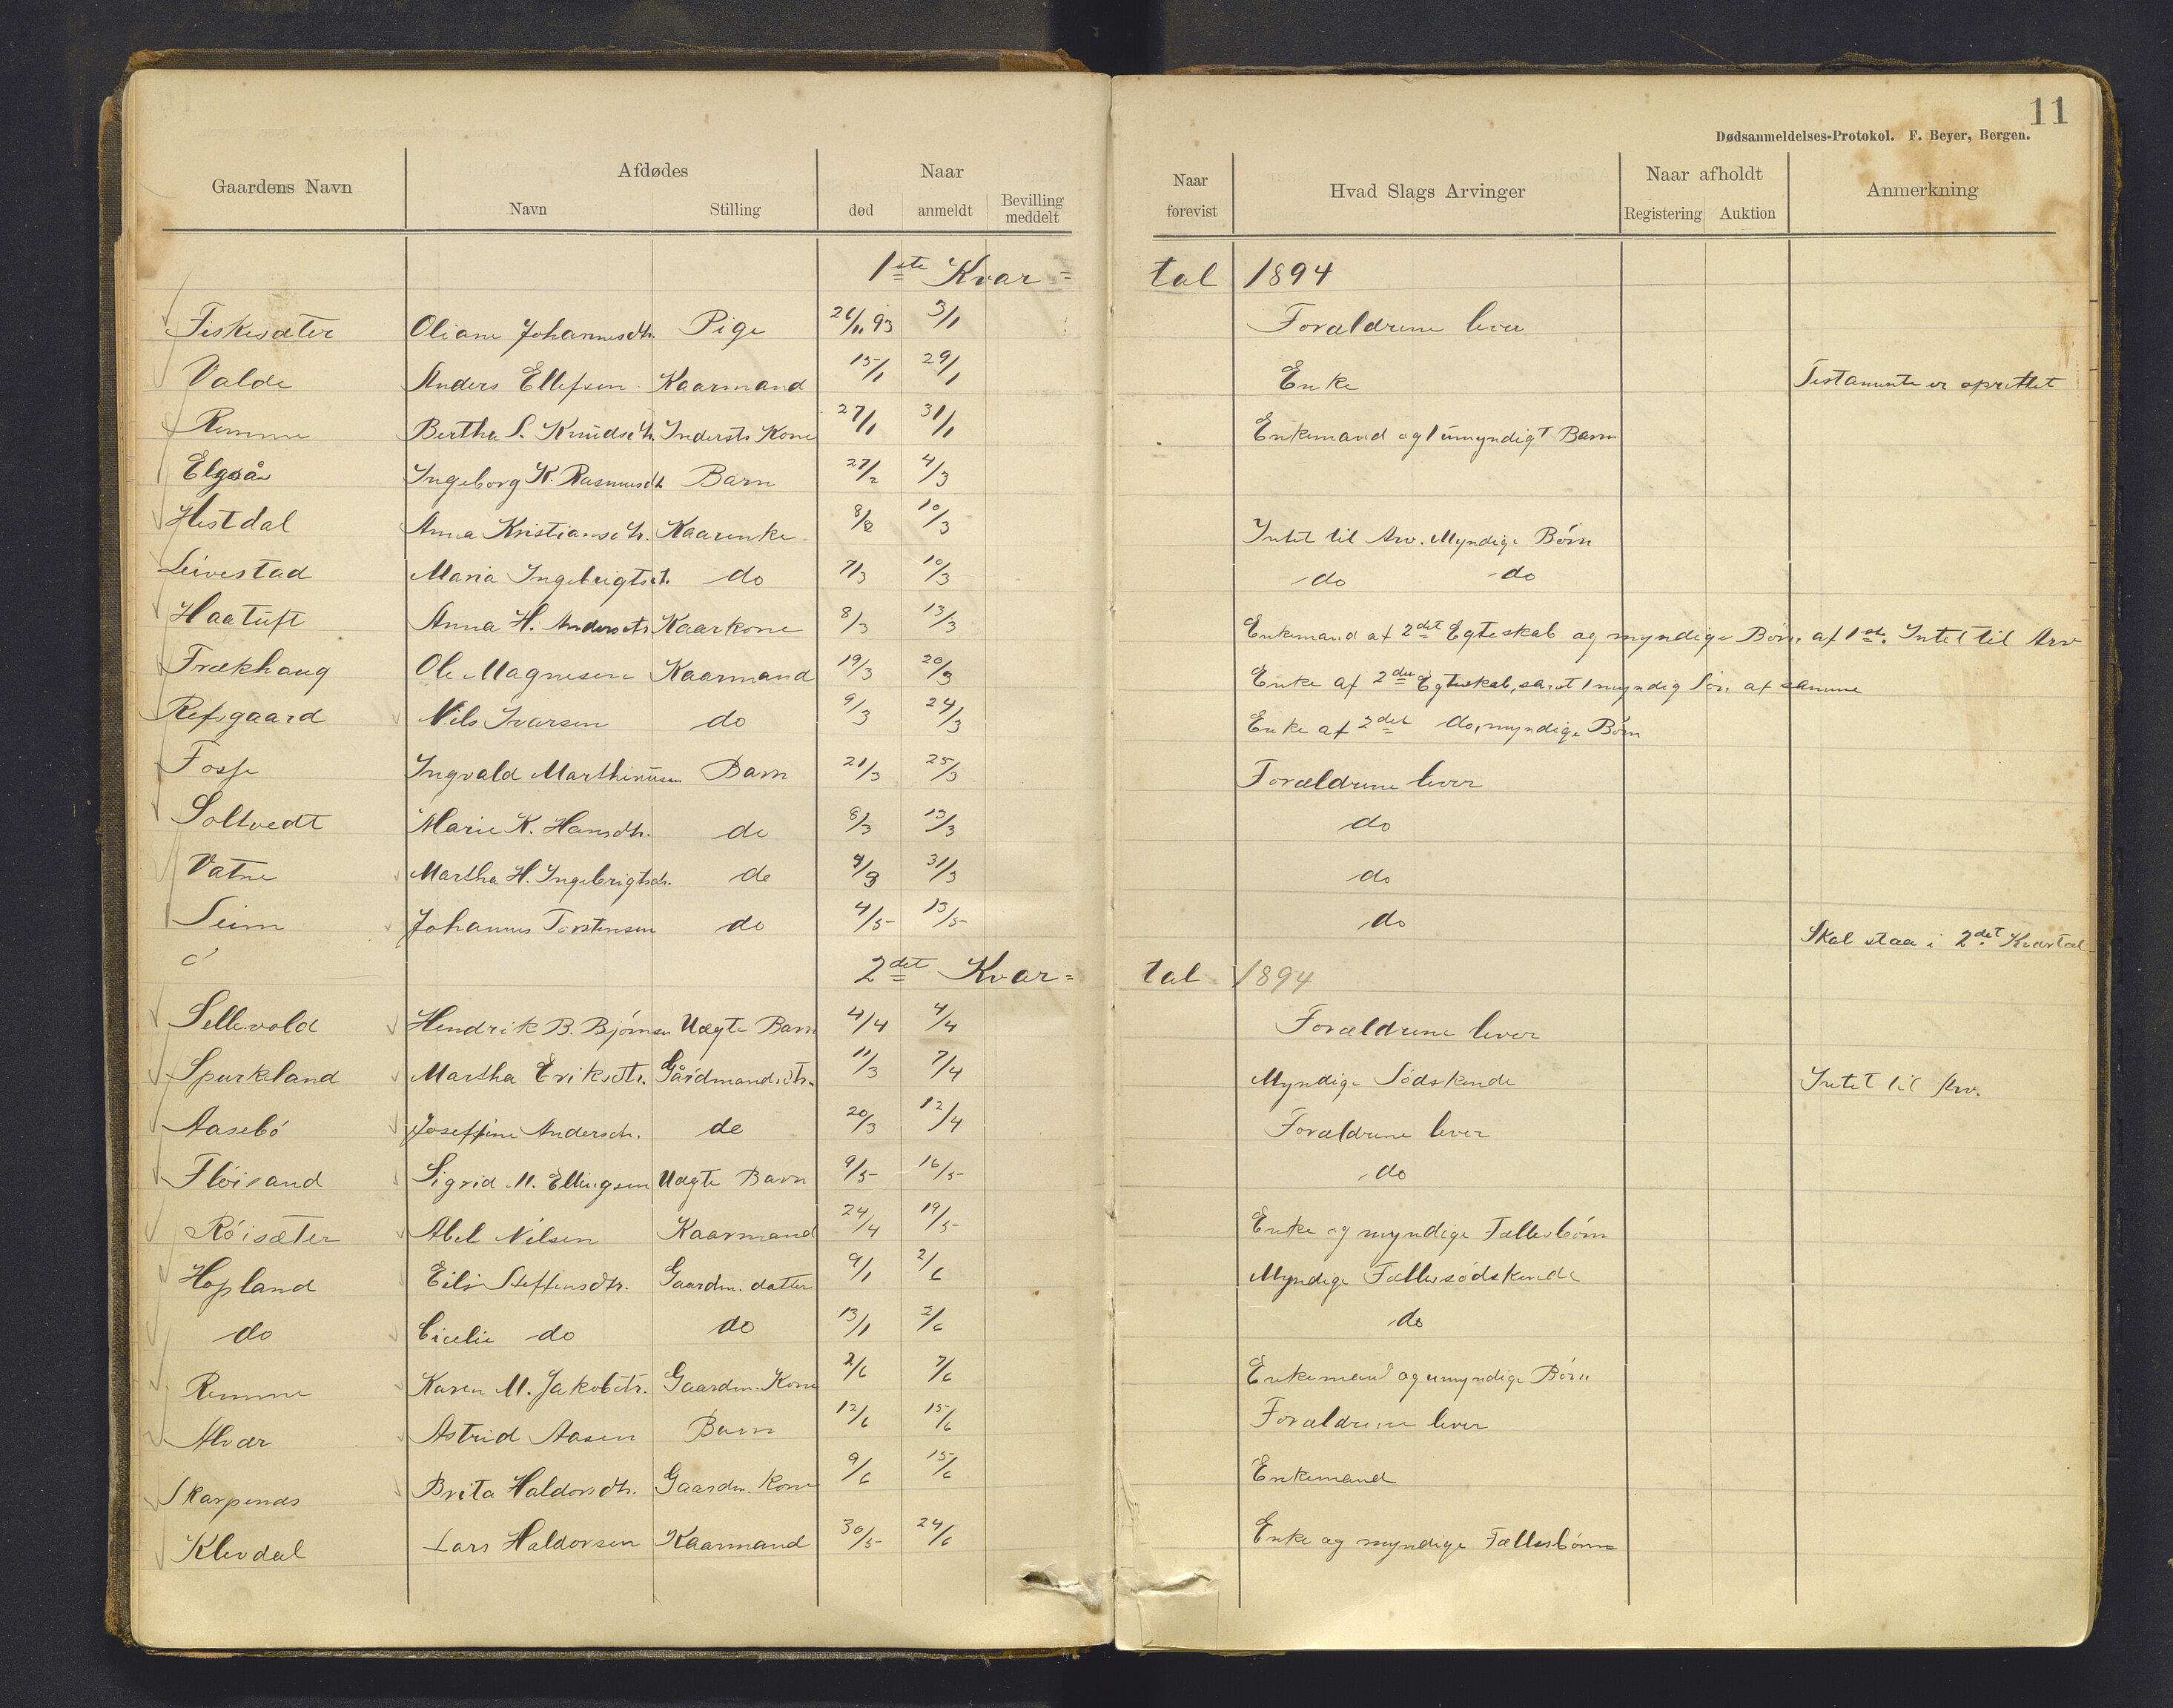 11
Dødsanmeldelses-Protokol. F. Beyer, Bergen.
Gaardens Navn Afdødes Naar Naar forevist Hvad Slags Arvinger Naar afholdt Anmerkning
Navn Stilling død anmeldt Bevilling meddelt Registering Auktion
1ste Kvar= tal 1894
Fiskesæter Oliane Johannesdtr. Pige 26/11 93 3/1 Forældrene lever
Valde Anders Ellefsen Kaarmand 15/1 29/1 Enke Testamente er oprettet
Remme Bertha S. Knudsdtr. Indersts Kone 27/1 31/1 Enkemand og 1 umyndigt Barn
Ingeborg K. Rasmusdt Barn 27/2 4/3
Hestdal Anna Kristiansdtr. Kaarenke 8/2 10/3 Intet til Arv. Myndige Børn
Leivestad Maria Ingebrigtsdt. do 7/3 10/3 do do
Haatuft Anna H. Andersdtr Kaarkone 8/3 13/3 Enkemand af 2det Egteskab og myndige Børn af 1st. Intet til Arv
Trækhaug Ole Magnesen Kaarmand 19/3 20/3 Enke af 2det Egteskab, samt 1 myndig Søn af samme
Refsgaard Nils Ivarsen do 9/3 24/3 Enke af 2det do, myndige Børn
Fosse Ingvald Marthinusen Barn 21/3 25/3 Forældrene lever
Soltvedt Marie K. Hansdtr. do 8/3 13/3 do
Vatne Martha H. Ingebrigtsdtr. do 9/3 31/3 do
Seim Johannes Torstensen do 4/5 13/5 do Skal staa i 2det Kvartal
2det Kvar= tal 1894
Sellevold Hendrik B. Bjørnsen Uægte Barn 4/4 4/4 Forældrene lever
Spurkland Martha Eriksdtr. Gårdmandsdtr. 11/3 7/4 Myndige Södskende Intet til Arv.
Aasebö Joseffine Andersdtr. do 20/3 12/4 Forældrene lever
Fløisand Sigrid M. Ellingsen Uægte Barn 9/5 16/5 do
Röisæter Abel Nilsen Kaarmand 24/4 19/5 Enke og myndige Fællesbörn
Hopland Eili Steffensdtr. Gaardm. datter 9/1 2/6 Myndige Fællessödskende
do Cicelie do do 13/1 2/6 do
Remme Karen M. Jakobdtr. Gaardm. Kone 2/6 7/6 Enkemand og umyndige Börn
Alvær Astrid Aasen Barn 12/6 15/6 Forældrene lever
Skarpenes Brita Haldorsdtr. Gaardm. Kone 9/6 15/6 Enkemand
Klevdal Lars Haldorsen Kaarmand 30/5 24/6 Enke og myndige Fællesbörn